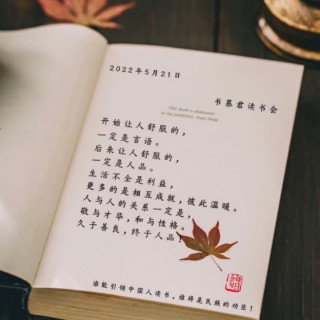 2022年5月21日
书慕君读书会
开始让人舒服的，
一定是言语。
后来让人舒服的，
一定是人品。
生活不全是利益，
更多的是相互成就，彼此温暖。
人与人的关系一定是，
敬与才华，和与性格。
久于善良，终于人品！
谁能引领中国人读书，谁将是民族的功臣！